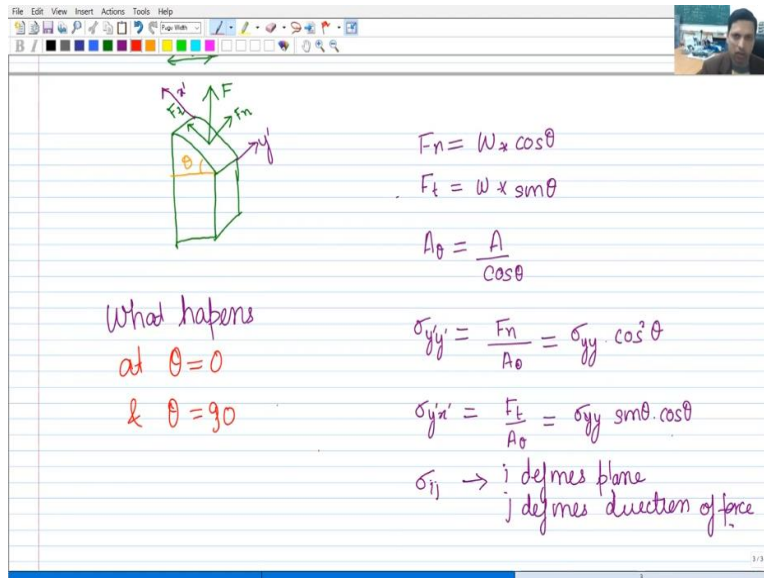 File Edit View Insert Actions Tools Help
Page Width
B I
x'
F
Ft
Fn
y'
θ
Fn = W × cosθ
Ft = W × sinθ
Aθ = A / cosθ
What hapens
at θ = 0
& θ = 90
σy'y' = Fn / Aθ = σyy . cos²θ
σy'x' = Ft / Aθ = σyy sinθ. cosθ
σij → i defines plane
j defines direction of force
3/3
3